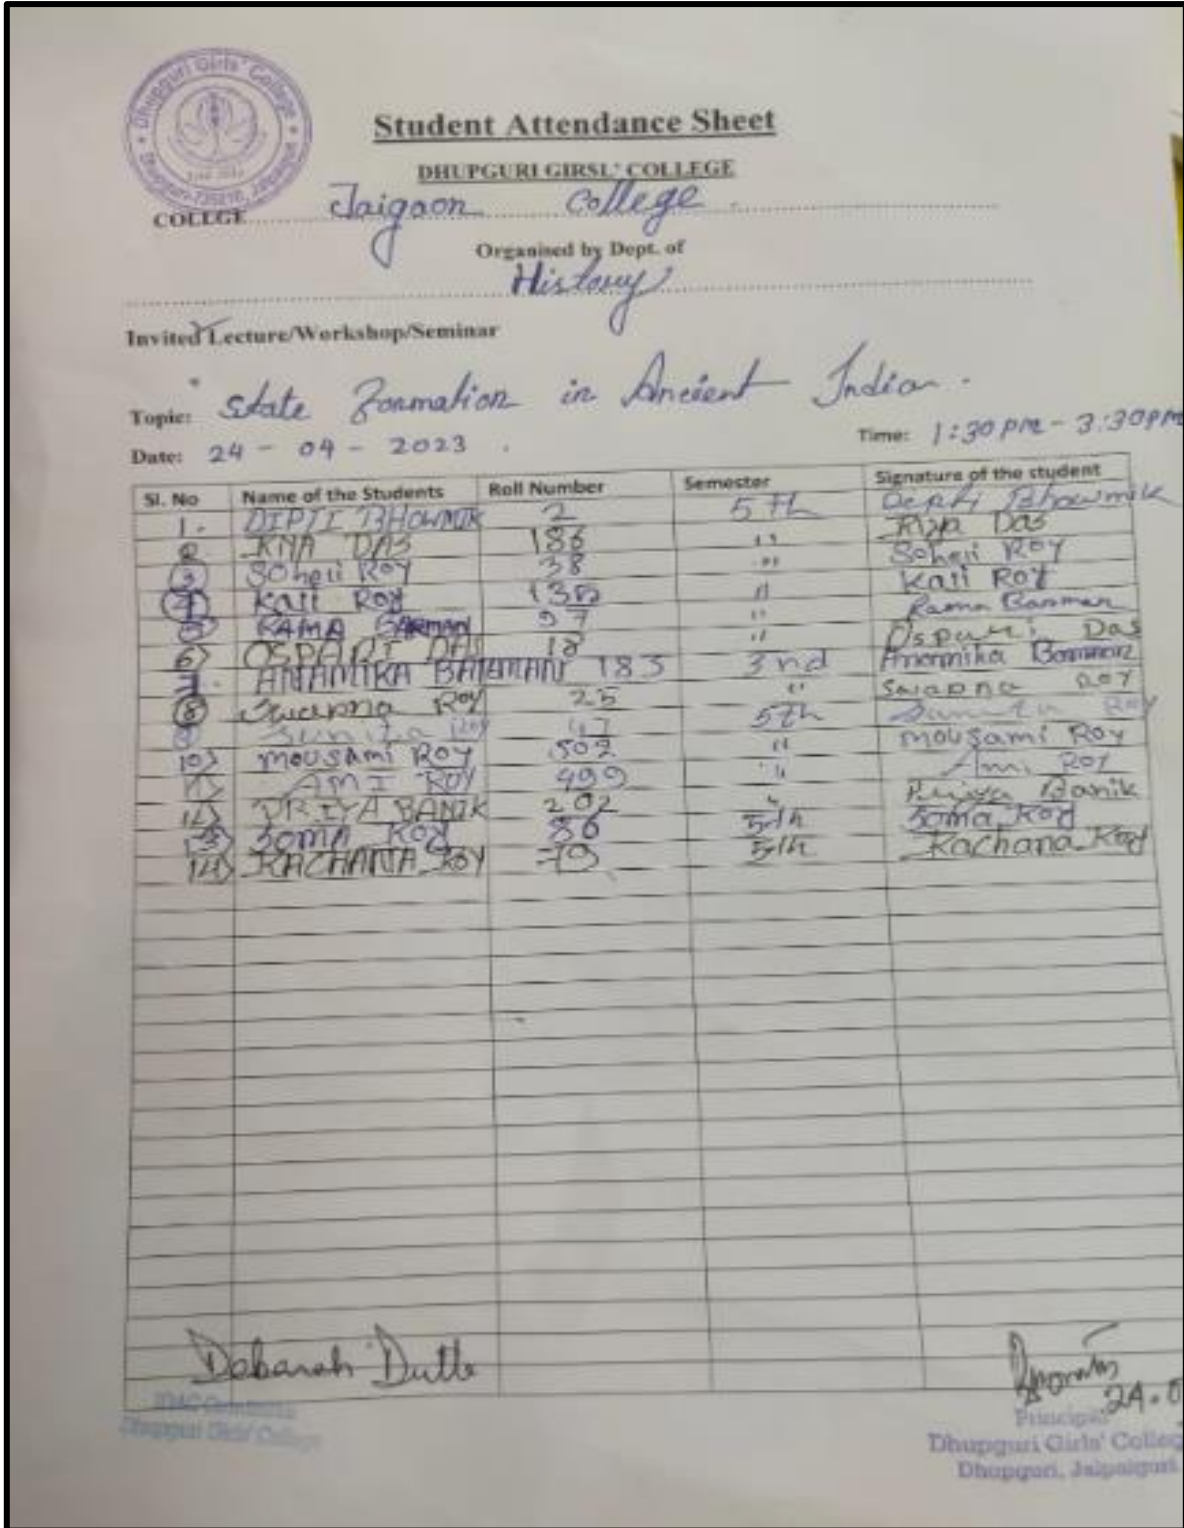 Dhupguri Girls' College
Dhupguri-735210, Jalpaiguri
Student Attendance Sheet
DHUPGURI GIRSL' COLLEGE
COLLGE Jaigaon College.
Organised by Dept. of
History
Invited Lecture/Workshop/Seminar
Topic: State Formation in Ancient India.
Date: 24-04-2023. Time: 1:30 PM - 3:30 PM
Sl. No Name of the Students Roll Number Semester Signature of the student
1. DIPTI BHOWMIK 2 5th Bhowmik
2 DAS 186 " Riya Das
3 Soheli Roy 38 " Soheli Roy
4 Kali Roy " Kali Roy
5 RAMA BARMAN 97 " Rama Barman
6) OSPARI DAS 18 " Ospari Das
7. ANAMIKA BARMAN 183 3nd Anamika Barman
8 Swapna Roy 25 " Swapna ROY
9 Sunita Roy 47 5th Sunita Roy
10) Mousami Roy 502 " Mousami Roy
11) AMI ROY 499 " Ami ROY
12) PRIYA BANIK 202 " Priya Banik
13) SOMA ROY 86 5th Soma Roy
14) KACHANA ROY 79 5th Kachana Roy
Dutta
24.0
IQAC
Dhupguri Girls' College
Principal
Dhupguri Girls' Colleg
Dhupguri, Jalpaiguri